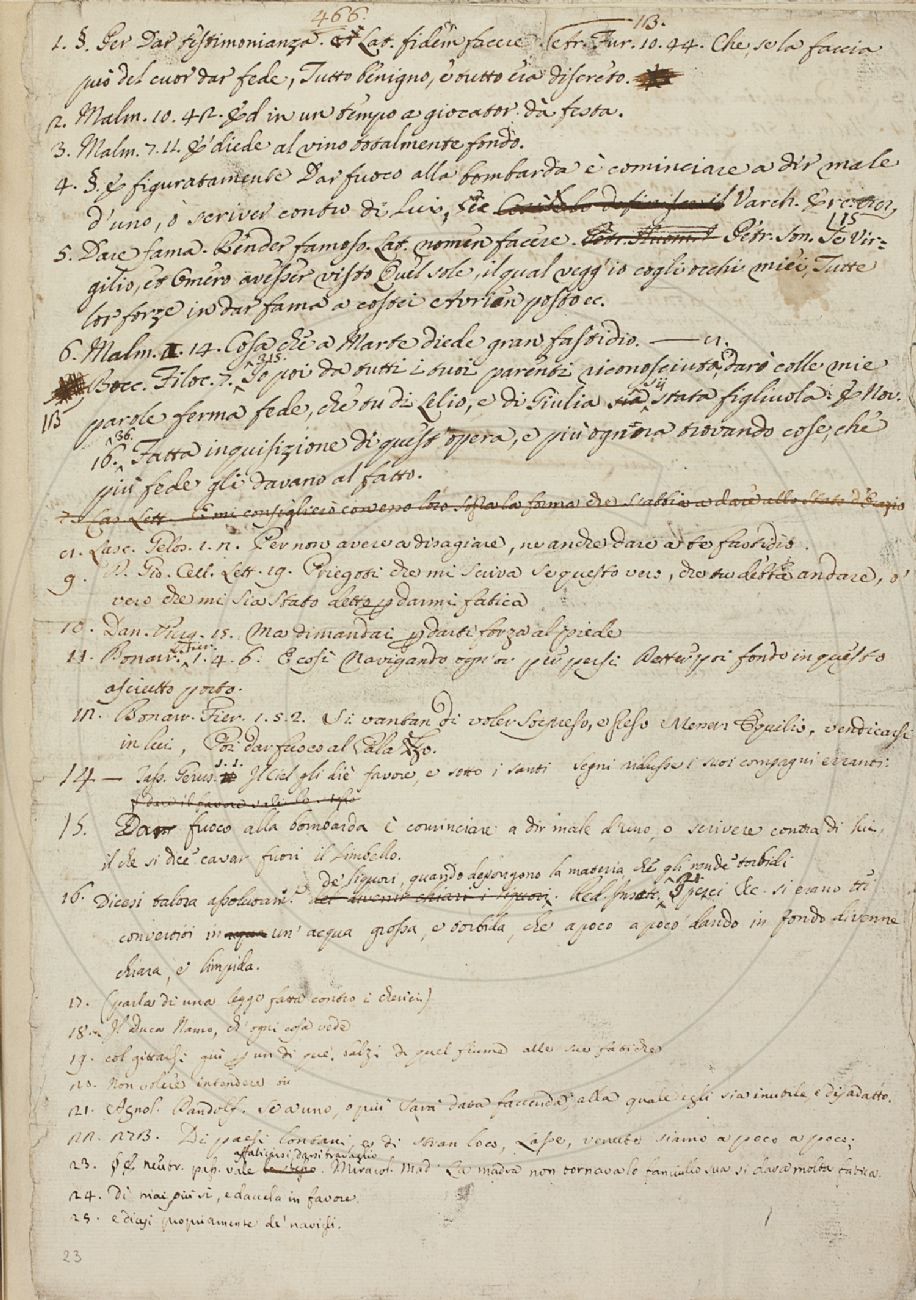 466. 113.
1. §. Per Dar testimonianza. Lat. fidem facere. Petr. Fur. 10. 44. Che, se la faccia
può del cuor dar fede, Tutto benigno, e tutto era discreto.
2. Malm. 10. 42. Ed in un tempo a giocator dà festa.
3. Malm. 7. 11. E diede al vino totalmente fondo.
4. §. E figuratamente Dar fuoco alla bombarda è cominciare a dir male
d'uno, o scriver contro di Lui, Varch. Ercol.
115
5. Dare fama. Render famoso. Lat. nomen facere. Petr. Son. Se Vir=
gilio, et Omero avesser visto Quel sole, il qual vegg'io cogli occhi miei, Tutte
lor forze in dar fama a costei Avrian posto ec.
6. Malm. 1. 14. Cosa che a Marte diede gran fastidio.
315.
Bocc. Filoc. 7. Io poi da tutti i tuoi parenti riconosciuta, darò colle mie
113 parole ferma fede, che tu di Lelio, e di Giulia sij stata figliuola: E Nov.
36.
16. Fatta inquisizione di quest'opera, e più ognora trovando cose, che
più fede gli davano al fatto.
Car. Lett. mi consiglierò con esso loro sopra la forma che s'abbia a dare allo Stato d'
Lasc. Gelos. 1. 2. Per non avere a disagiare, ne anche dare a te fastidio.
9. Gio. Cell. Lett. 19. Priegoti che mi scriva se questo vero, che tu debba andare, o
vero che mi sia stato detto p darmi fatica
10. Dan. Purg. 15. Ma dimandai p darti forza al piede
11. Bonarr. Fier. 1. 4. 6. E così Navigando ogn'or più persi Detter poi fondo in questo
asciutto porto.
12. Bonarr. Fier. 1. 5. 2. Si vantan di voler
in lui, Poi dar fuoco al
14 — Tass. Gerus. 1. 1. Il Ciel gli diè favore, e sotto i santi Segni ridusse i suoi compagni erranti.
15. Dar fuoco alla bombarda è cominciare a dir male d'uno, o scrivere contra di lui,
il che si dice cavar fuori il limbello.
de' liquori, quando depongono la materia, che gli rende torbidi
16. Dicesi talora assolutam. Red. Insett. I pesci &c. si erano tti
convertiti in un' acqua grossa, e torbida, che a poco a poco dando in fondo divenne
chiara, e limpida.
17. (parla di una legge fatta contro i cherici.)
18. Il Duca Namo, ch' ogni cosa vede
19. col gittarsi qui p un di que' balzi di quel fiume alle sue fatiche
20. Non volere intendere
21. Agnol. Pandolf. Se a uno, o più sarà data faccenda alla quale egli sia inutile, e disadatto.
22. Di paesi lontani, e di stran loco, Lasse, venute siamo a poco a poco.
affaticarsi darsi travaglio
23. §. E neutr. pass. vale lo stesso. Miracol. Mad. La madre non tornava lo fanciullo suo si dava molta fatica.
24. Di mai più sì, e davela in favore.
25. e dicesi propriamente de' navigli.
23